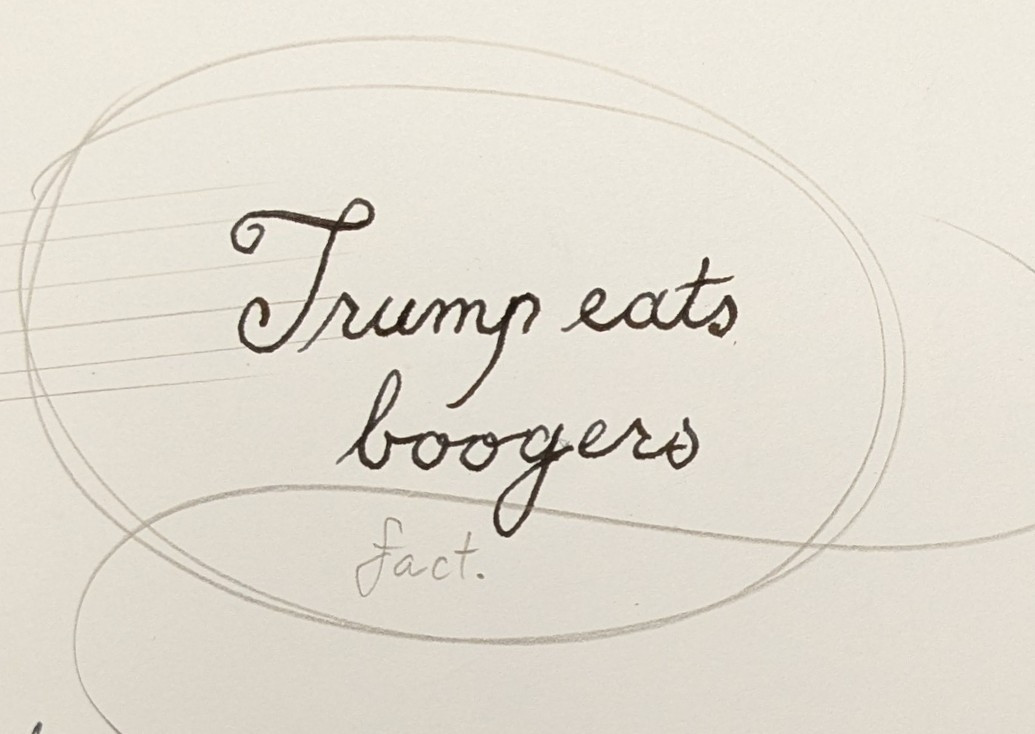 Trump eats
boogers
fact.